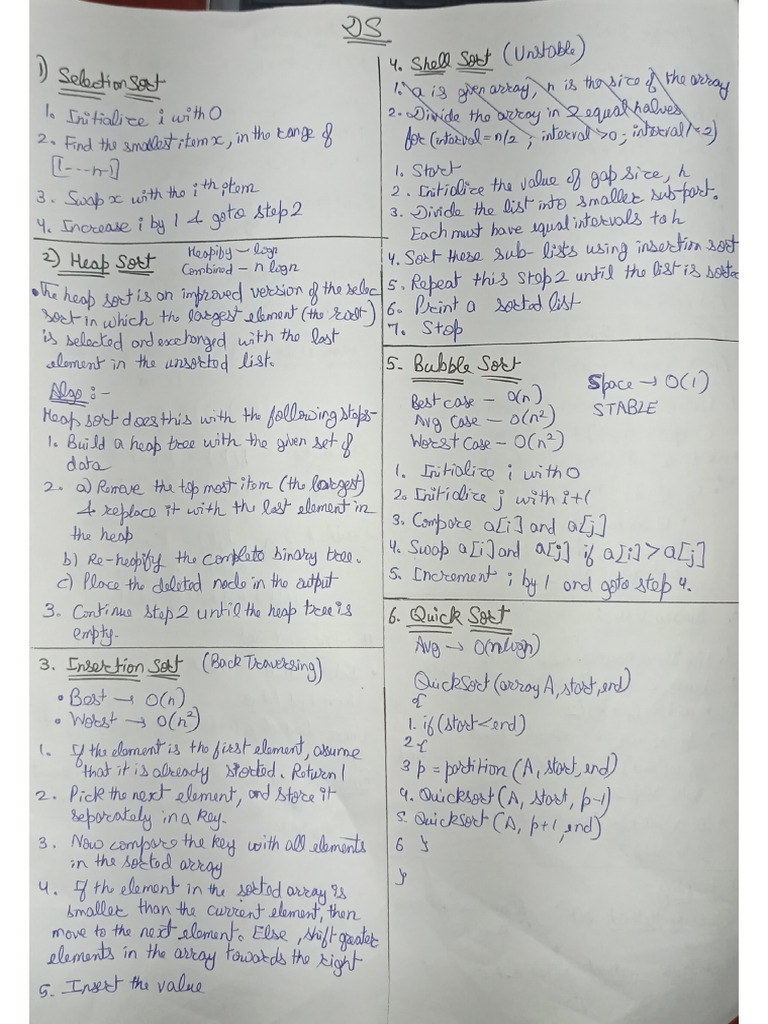 DS
1) Selection Sort
1. Initialize i with 0
2. Find the smallest item x, in the range of
[1---n-1]
3. Swap x with the ith item
4. Increase i by 1 & goto step 2
2) Heap Sort
Heapify - logn
Combined - n logn
• The heap sort is an improved version of the selec
sort in which the largest element (the root)
is selected and exchanged with the last
element in the unsorted list.
Algo :-
Heap sort does this with the following steps-
1. Build a heap tree with the given set of
data
2. a) Remove the top most item (the largest)
& replace it with the last element in
the heap
b) Re-heapify the complete binary tree.
c) Place the deleted node in the output
3. Continue step 2 until the heap tree is
empty.
3. Insertion Sort (Back Traversing)
• Best → O(n)
• Worst → O(n²)
1. If the element is the first element, assume
that it is already sorted. Return 1
2. Pick the next element, and store it
seperately in a key.
3. Now compare the key with all elements
in the sorted array
4. If the element in the sorted array is
smaller than the current element, then
move to the next element. Else, shift greater
elements in the array towards the right
5. Insert the value
4. Shell Sort (Unstable)
1. a is given array, n is the size of the array
2. Divide the array in 2 equal halves
for (interval = n/2 ; interval >0; interval /=2)
1. Start
2. Initialize the value of gap size, h
3. Divide the list into smaller sub-part.
Each must have equal intervals to h
4. Sort these sub-lists using insertion sort
5. Repeat this Step 2 until the list is sorted
6. Print a sorted list
7. Stop
5. Bubble Sort
Best case - O(n)
Avg Case - O(n²)
Worst Case - O(n²)
Space → O(1)
STABLE
1. Initialize i with 0
2. Initialize j with i+1
3. Compare a[i] and a[j]
4. Swap a[i] and a[j] if a[i] > a[j]
5. Increment i by 1 and goto step 4.
6. Quick Sort
Avg → O(nlogn)
QuickSort (array A, start, end)
{
1. if (start < end)
2 {
3 p = partition (A, start, end)
4. Quicksort (A, start, p-1)
5. Quicksort (A, p+1, end)
6 }
}